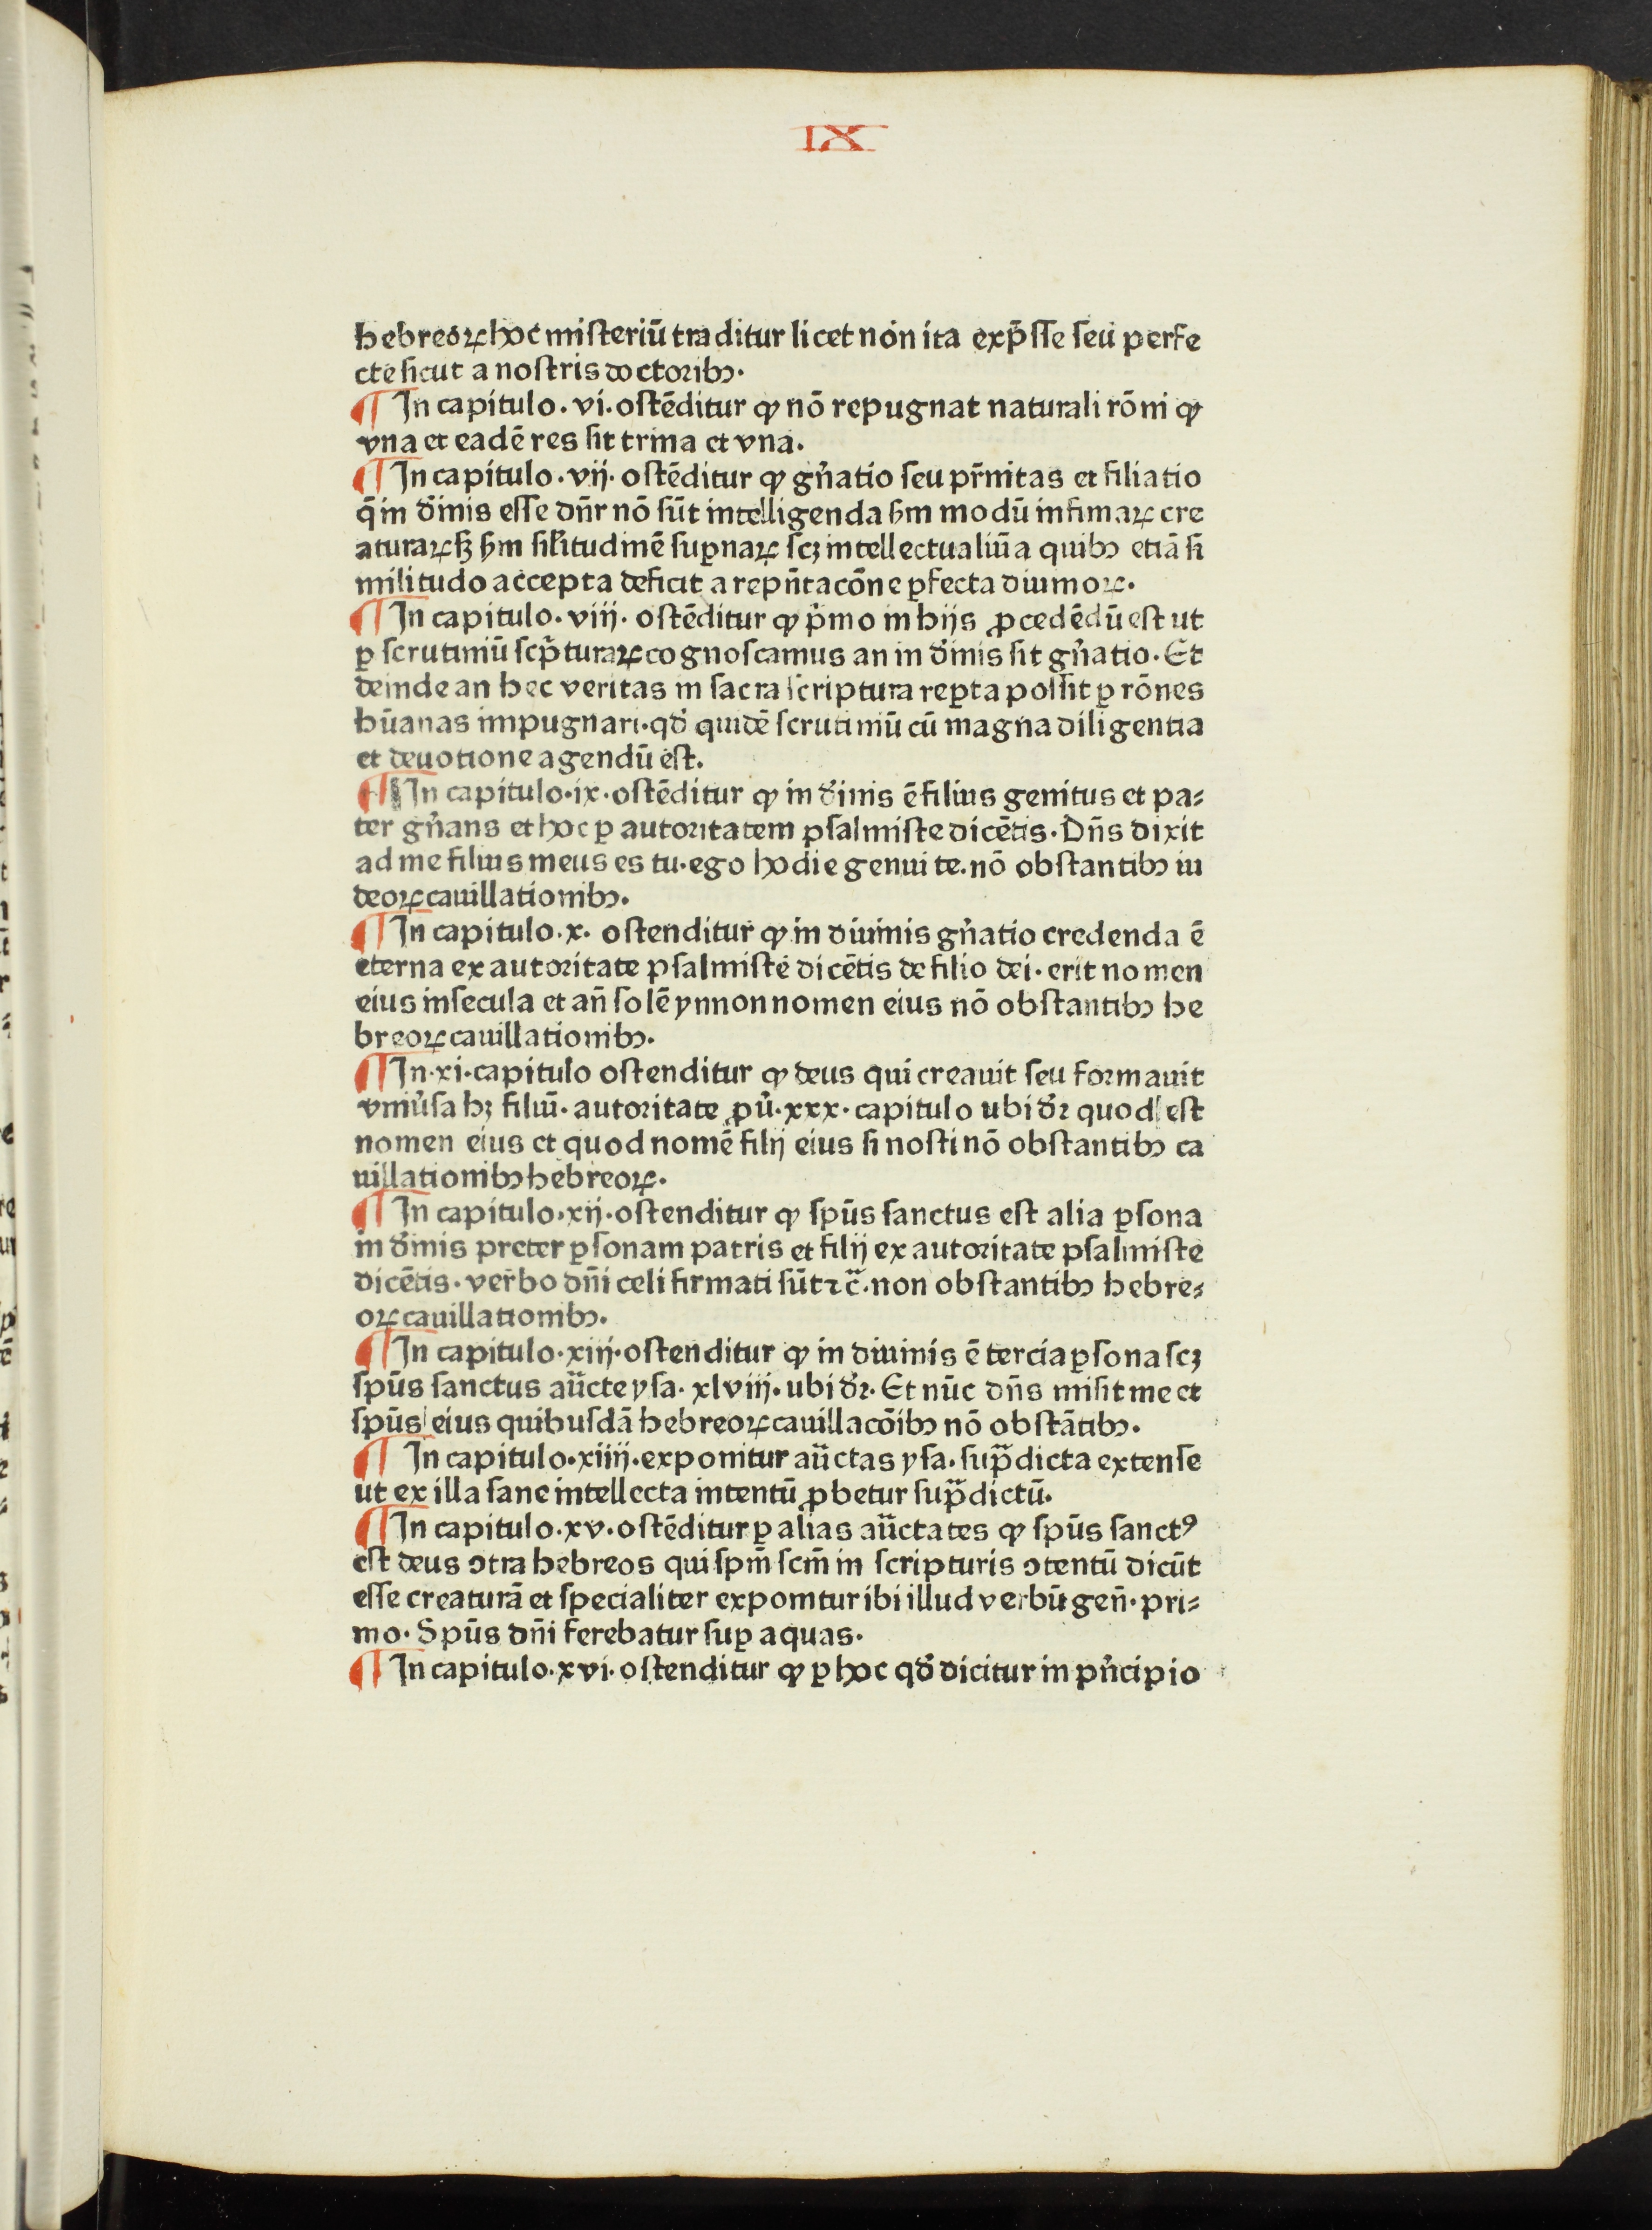 IX
hebreoꝝ hoc misteriū traditur licet non ita exp̄sse seu perfe
cte sicut a nostris doctoribꝰ.
¶ In capitulo. vi. ostēditur ꝙ nō repugnat naturali rōni ꝙ
vna et eadē res sit trina et vna.
¶ In capitulo. vij. ostēditur ꝙ gn̄atio seu pr̄nitas et filiatio
q̄ in diuinis esse dn̄r nō sūt intelligenda scd̄m modū infimaꝝ cre
aturaꝝ sꝫ scd̄m sil̄itudinē suꝑnaꝝ scꝫ intellectualiū a quibꝰ etiā si
militudo accepta deficit a repn̄tacōne ꝑfecta diuinoꝝ.
¶ In capitulo. viij. ostēditur ꝙ p̄mo in hijs ꝓcedēdū est ut
ꝑ scrutiniū scp̄turaꝝ cognoscamus an in diuinis sit gn̄atio. Et
deinde an hec veritas in sacra scriptura reꝑta possit ꝑ rōnes
hūanas impugnari. qđ quidē scrutiniū cū magna diligentia
et deuotione agendū est.
¶ In capitulo. ix. ostēditur ꝙ in diuinis ē filius genitus et pa⸗
ter gn̄ans et hoc ꝑ autoritatem psalmiste dicētis. Dn̄s dixit
ad me filius meus es tu. ego hodie genui te. nō obstantibꝰ iu
deoꝝ cauillationibꝰ.
¶ In capitulo. x. ostenditur ꝙ in diuinis gn̄atio credenda ē
eterna ex autoritate psalmiste dicētis de filio dei. erit nomen
eius in secula et an̄ solē ynnon nomen eius nō obstantibꝰ he
breoꝝ cauillationibꝰ.
¶ In. xi. capitulo ostenditur ꝙ deus qui creauit seu formauit
vniu̓sa hꝫ filiū. autoritate ꝓu̓. xxx. capitulo ubi dr̄ quod est
nomen eius et quod nomē filij eius si nosti nō obstantibꝰ ca
uillationibꝰ hebreoꝝ.
¶ In capitulo. xij. ostenditur ꝙ spūs sanctus est alia ꝑsona
in diuinis preter ꝑsonam patris et filij ex autoritate psalmiste
dicētis. verbo dn̄i celi firmati sūt ⁊c̄. non obstantibꝰ hebre⸗
oꝝ cauillationibꝰ.
¶ In capitulo. xiij. ostenditur ꝙ in diuinis ē tercia ꝑsona scꝫ
spūs sanctus aūcte ysa. xlviij. ubi dr̄. Et nūc dn̄s misit me et
spūs eius quibusdā hebreoꝝ cauillacōibꝰ nō obstātibꝰ.
¶ In capitulo. xiiij. exponitur aūctas ysa. sup̄dicta extense
ut ex illa sane intellecta intentū ꝓbetur sup̄dictū.
¶ In capitulo. xv. ostēditur ꝑ alias aūctates ꝙ spūs sanctꝰ
est deus ↄtra hebreos qui spm̄ scm̄ in scripturis ↄtentū dicūt
esse creaturā et specialiter exponitur ibi illud verbū gen̄. pri⸗
mo. Spūs dn̄i ferebatur suꝑ aquas.
¶ In capitulo. xvi. ostenditur ꝙ ꝑ hoc qđ dicitur in pn̓cipio